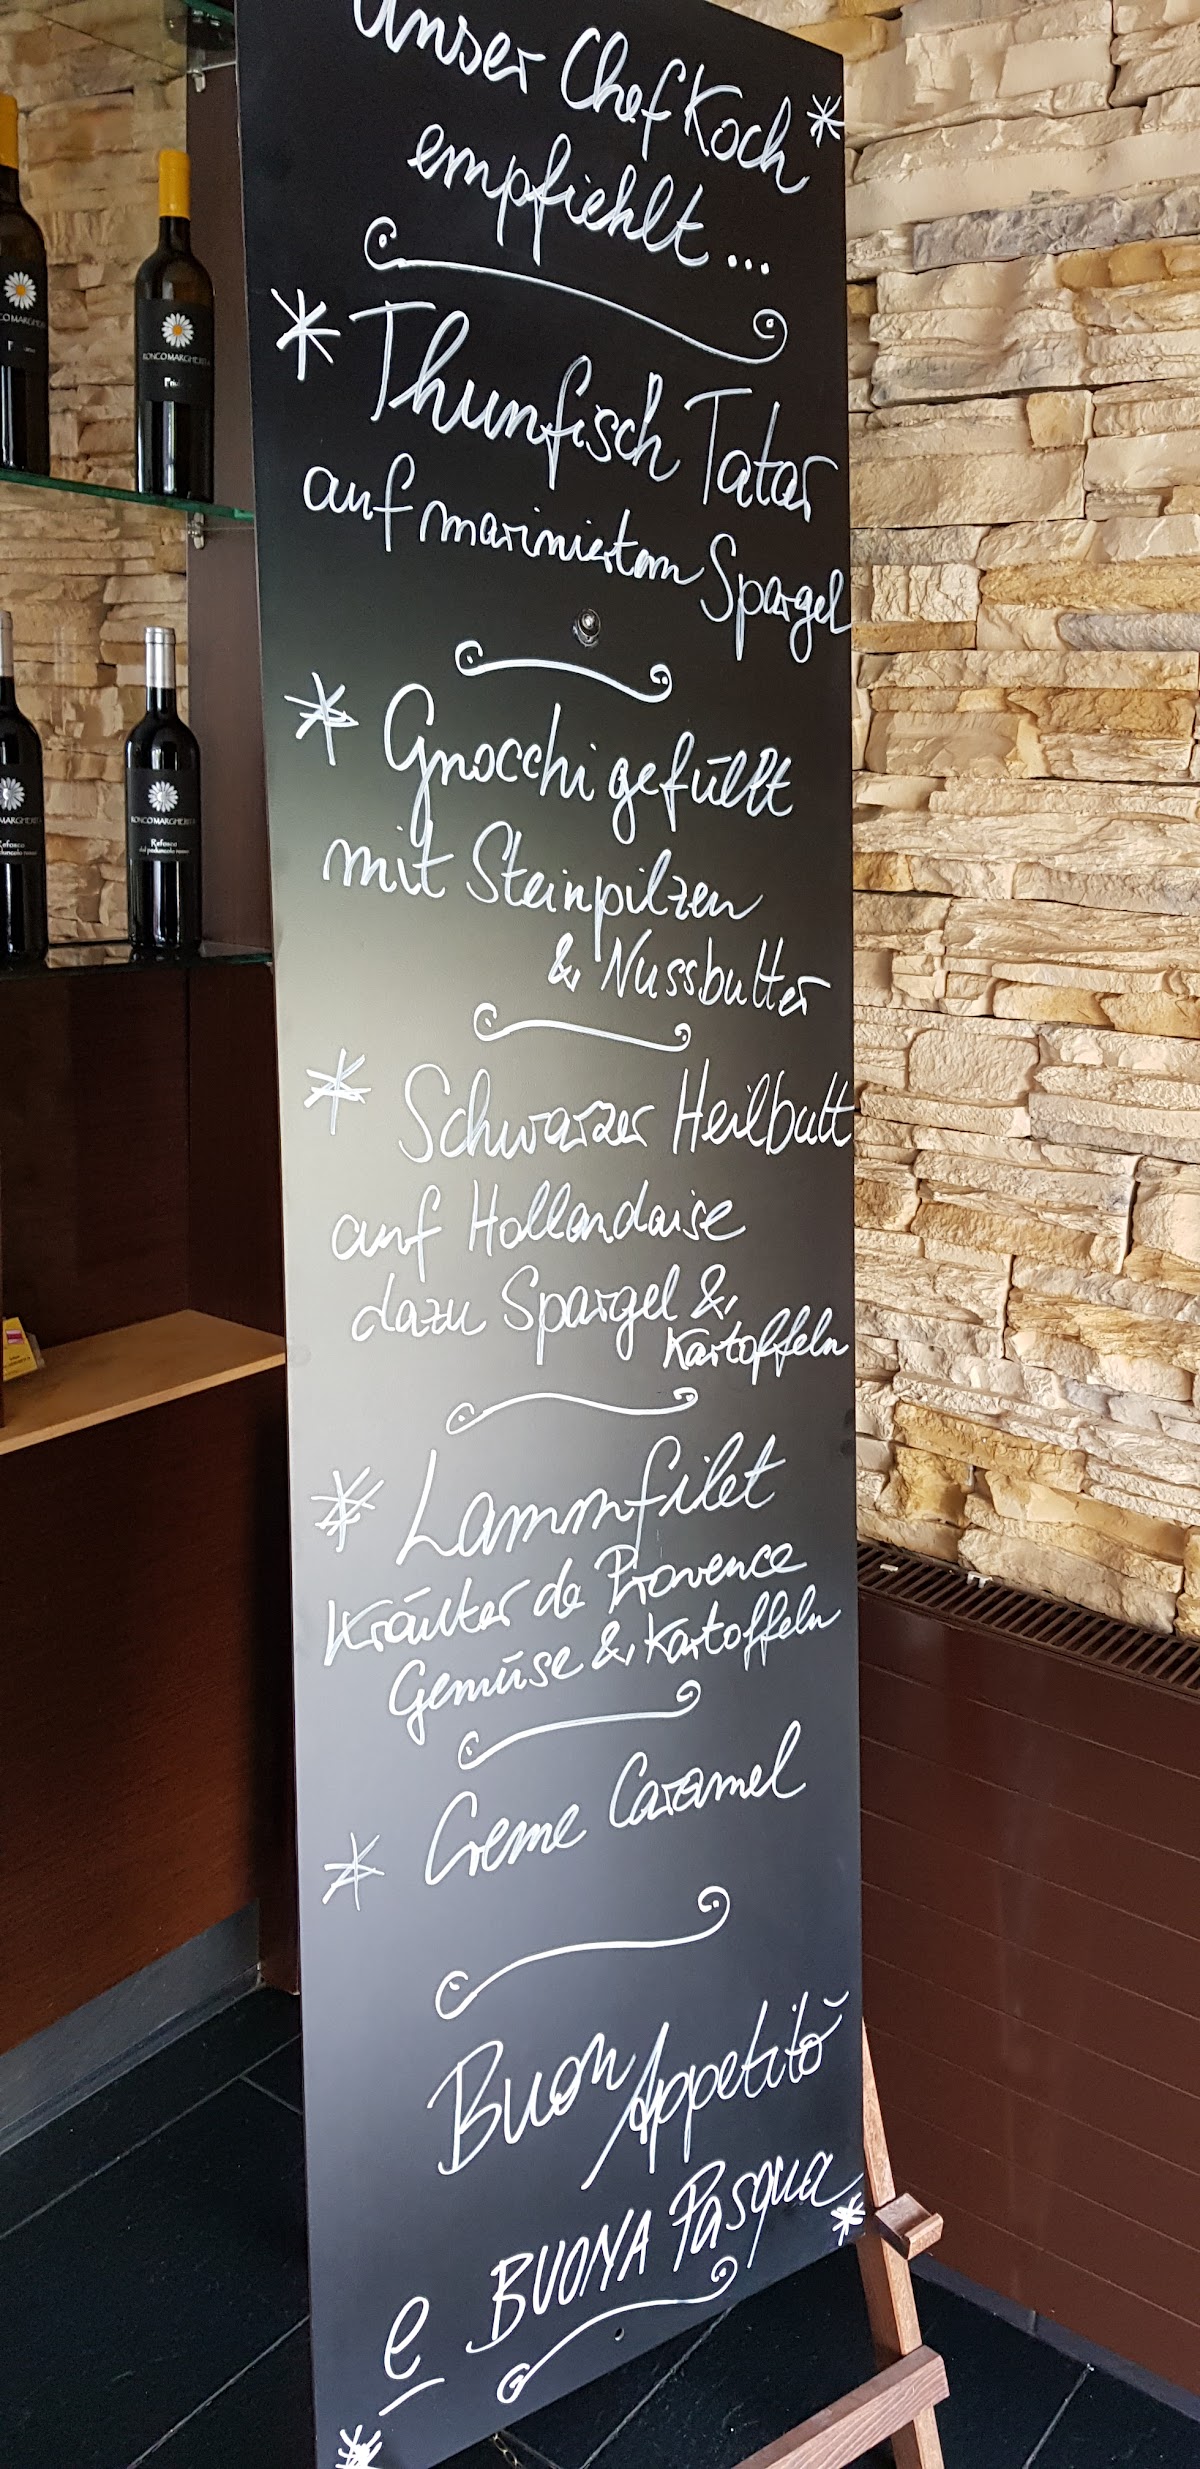 Unser ChefKoch
empfiehlt...
Thunfisch Tatar
auf mariniertem Spargel
Gnocchi gefüllt
mit Steinpilzen
& Nussbutter
Schwarzer Heilbutt
auf Hollandaise
dazu Spargel &
Kartoffeln
Lammfilet
Kräuter de Provence
Gemüse & Kartoffeln
Creme Caramel
Buon
Appetitò
e BUONA Pasqua
RONCO MARGHERITA
RONCO MARGHERITA
Refosco